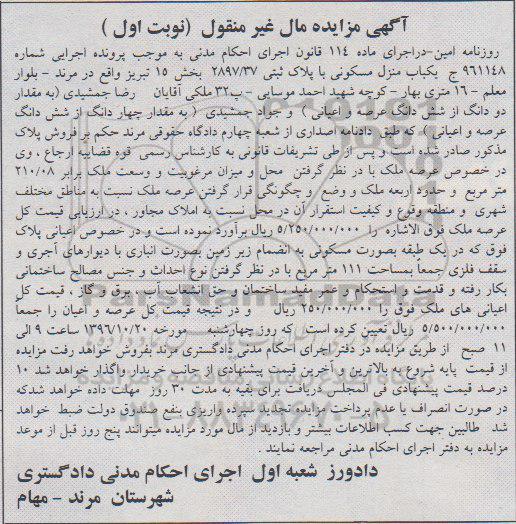 آگهی مزایده مال غیر منقول (نوبت اول )
روزنامه امین-دراجرای ماده ۱۱۴ قانون اجرای احکام مدنی به موجب پرونده اجرایی شماره
۹۶۱۱۴۸ ج یکباب منزل مسکونی با پلاک ثبتی ۲۸۹۷/۳۷ بخش ۱۵ تبریز واقع در مرند - بلوار
معلم - ۱۶ متری بهار - کوچه شهید احمد موسایی - پ۳۲ ملکی آقایان رضا جمشیدی (به مقدار
دو دانگ از شش دانگ عرصه و اعیانی ) و جواد جمشیدی ( به مقدار چهار دانگ از شش دانگ
عرصه و اعیانی ) که طبق دادنامه اصداری از شعبه چهارم دادگاه حقوقی مرند حکم بر فروش پلاک
مذکور صادر شده است و پس از طی تشریفات قانونی به کارشناس رسمی قوه قضاییه ارجاع ، وی
در خصوص عرصه ملک با در نظر گرفتن محل و میزان مرغوبیت و وسعت ملک برابر ۲۱۰/۰۸
متر مربع و حدود اربعه ملک و وضع و چگونگی قرار گرفتن عرصه ملک نسبت به مناطق مختلف
شهری و منطقه وقوع و کیفیت استقرار آن در محل نسبت به املاک مجاور ، در ارزیابی قیمت کل
عرصه ملک فوق الاشاره را ۵/۲۵۰/۰۰۰/۰۰۰ ریال برآورد نموده است و در خصوص اعیانی پلاک
فوق که در یک طبقه بصورت مسکونی به انضمام زیر زمین بصورت انباری با دیوارهای آجری و
سقف فلزی جمعا بمساحت ۱۱۱ متر مربع با در نظر گرفتن نوع احداث و جنس مصالح ساختمانی
بکار رفته و قدمت و استحکام و عمر مفید ساختمان و حق انشعاب آب ، برق و گاز ، قیمت کل
اعیانی های ملک فوق را ۲۵۰/۰۰۰/۰۰۰ ریال و در نتیجه قیمت کل عرصه و اعیان را جمعاً
۵/۵۰۰/۰۰۰/۰۰۰ ریال تعیین کرده است که روز چهارشنبه مورخه ۱۳۹۶/۱۰/۲۰ ساعت ۹ الی
۱۱ صبح از طریق مزایده در دفتر اجرای احکام مدنی دادگستری مرند بفروش خواهد رفت مزایده
از قیمت پایه شروع به بالاترین و آخرین قیمت پیشنهادی از جانب خریدار واگذار خواهد شد ۱۰
درصد قیمت پیشنهادی فی المجلس دریافت برای بقیه به مدت ۳۰ روز مهلت داده خواهد شدکه
در صورت انصراف یا عدم پرداخت مزایده تجدید و سپرده واریزی بنفع صندوق دولت ضبط خواهد
شد طالبین جهت کسب اطلاعات بیشتر و بازدید از مال مورد مزایده میتوانند پنج روز قبل از موعد
مزایده به دفتر اجرای احکام مدنی مراجعه نمایند .
دادورز شعبه اول اجرای احکام مدنی دادگستری
شهرستان مرند - مهام
ParsNamadData